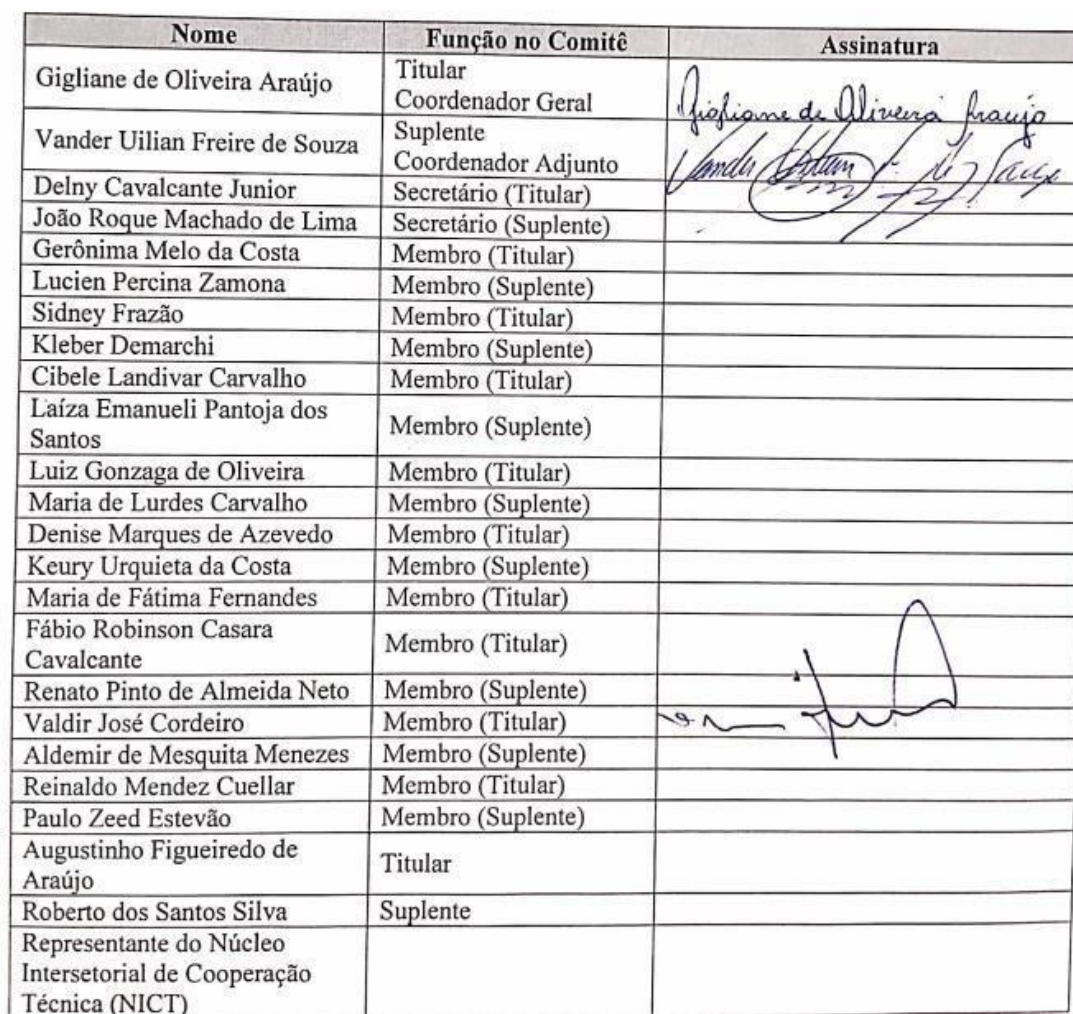 Nome Função no Comitê Assinatura
Gigliane de Oliveira Araújo Titular Coordenador Geral Gigliane de Oliveira Araujo
Vander Uilian Freire de Souza Suplente Coordenador Adjunto Vander
Delny Cavalcante Junior Secretário (Titular)
João Roque Machado de Lima Secretário (Suplente)
Gerônima Melo da Costa Membro (Titular)
Lucien Percina Zamona Membro (Suplente)
Sidney Frazão Membro (Titular)
Kleber Demarchi Membro (Suplente)
Cibele Landivar Carvalho Membro (Titular)
Laíza Emanueli Pantoja dos
Santos Membro (Suplente)
Luiz Gonzaga de Oliveira Membro (Titular)
Maria de Lurdes Carvalho Membro (Suplente)
Denise Marques de Azevedo Membro (Titular)
Keury Urquieta da Costa Membro (Suplente)
Maria de Fátima Fernandes Membro (Titular)
Fábio Robinson Casara
Cavalcante Membro (Titular)
Renato Pinto de Almeida Neto Membro (Suplente)
Valdir José Cordeiro Membro (Titular)
Aldemir de Mesquita Menezes Membro (Suplente)
Reinaldo Mendez Cuellar Membro (Titular)
Paulo Zeed Estevão Membro (Suplente)
Augustinho Figueiredo de
Araújo Titular
Roberto dos Santos Silva Suplente
Representante do Núcleo
Intersetorial de Cooperação
Técnica (NICT)